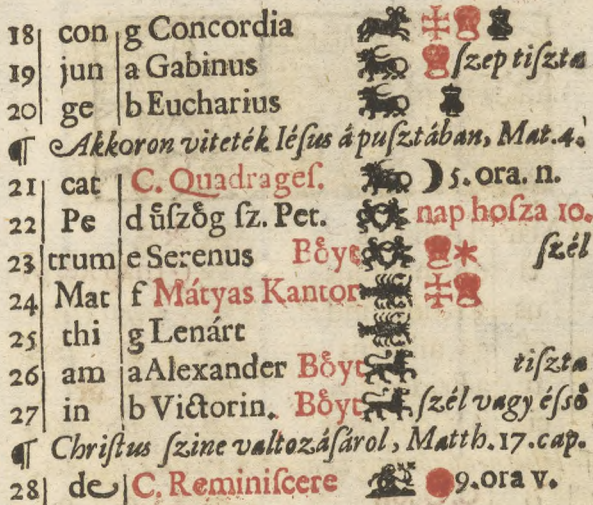 18 con g Concordia
19 jun a Gabinus ſzep tiſzta
20 ge b Eucharius
¶ Akkoron viteték Iéſus á puſztában, Mat. 4.
21 cat C. Quadrageſ. 5. ora. n.
22 Pe d üſzög ſz. Pet. nap hoſza 10.
23 trum e Serenus Böyt ſzél
24 Mat f Mátyas Kantor
25 thi g Lenárt
26 am a Alexander Böyt tiſzta
27 in b Victorin. Böyt ſzél vagy éſső
¶ Chriſtus ſzine valtozásárol, Matth. 17. cap.
28 de C. Reminiſcere 9. ora v.